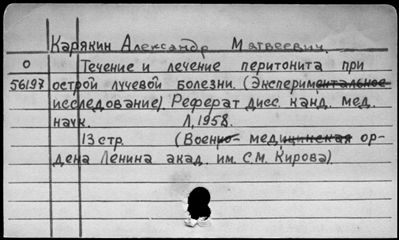 Карякин Александр Матвеевич.
О Течение и лечение перитонита при
56197 острой лучевой болезни. (Экспериментальное
исследование). Реферат дисс. канд. мед.
наук. Л, 1958.
13 стр. (Военно-медицинская ор-
дена Ленина акад. им. С.М. Кирова).